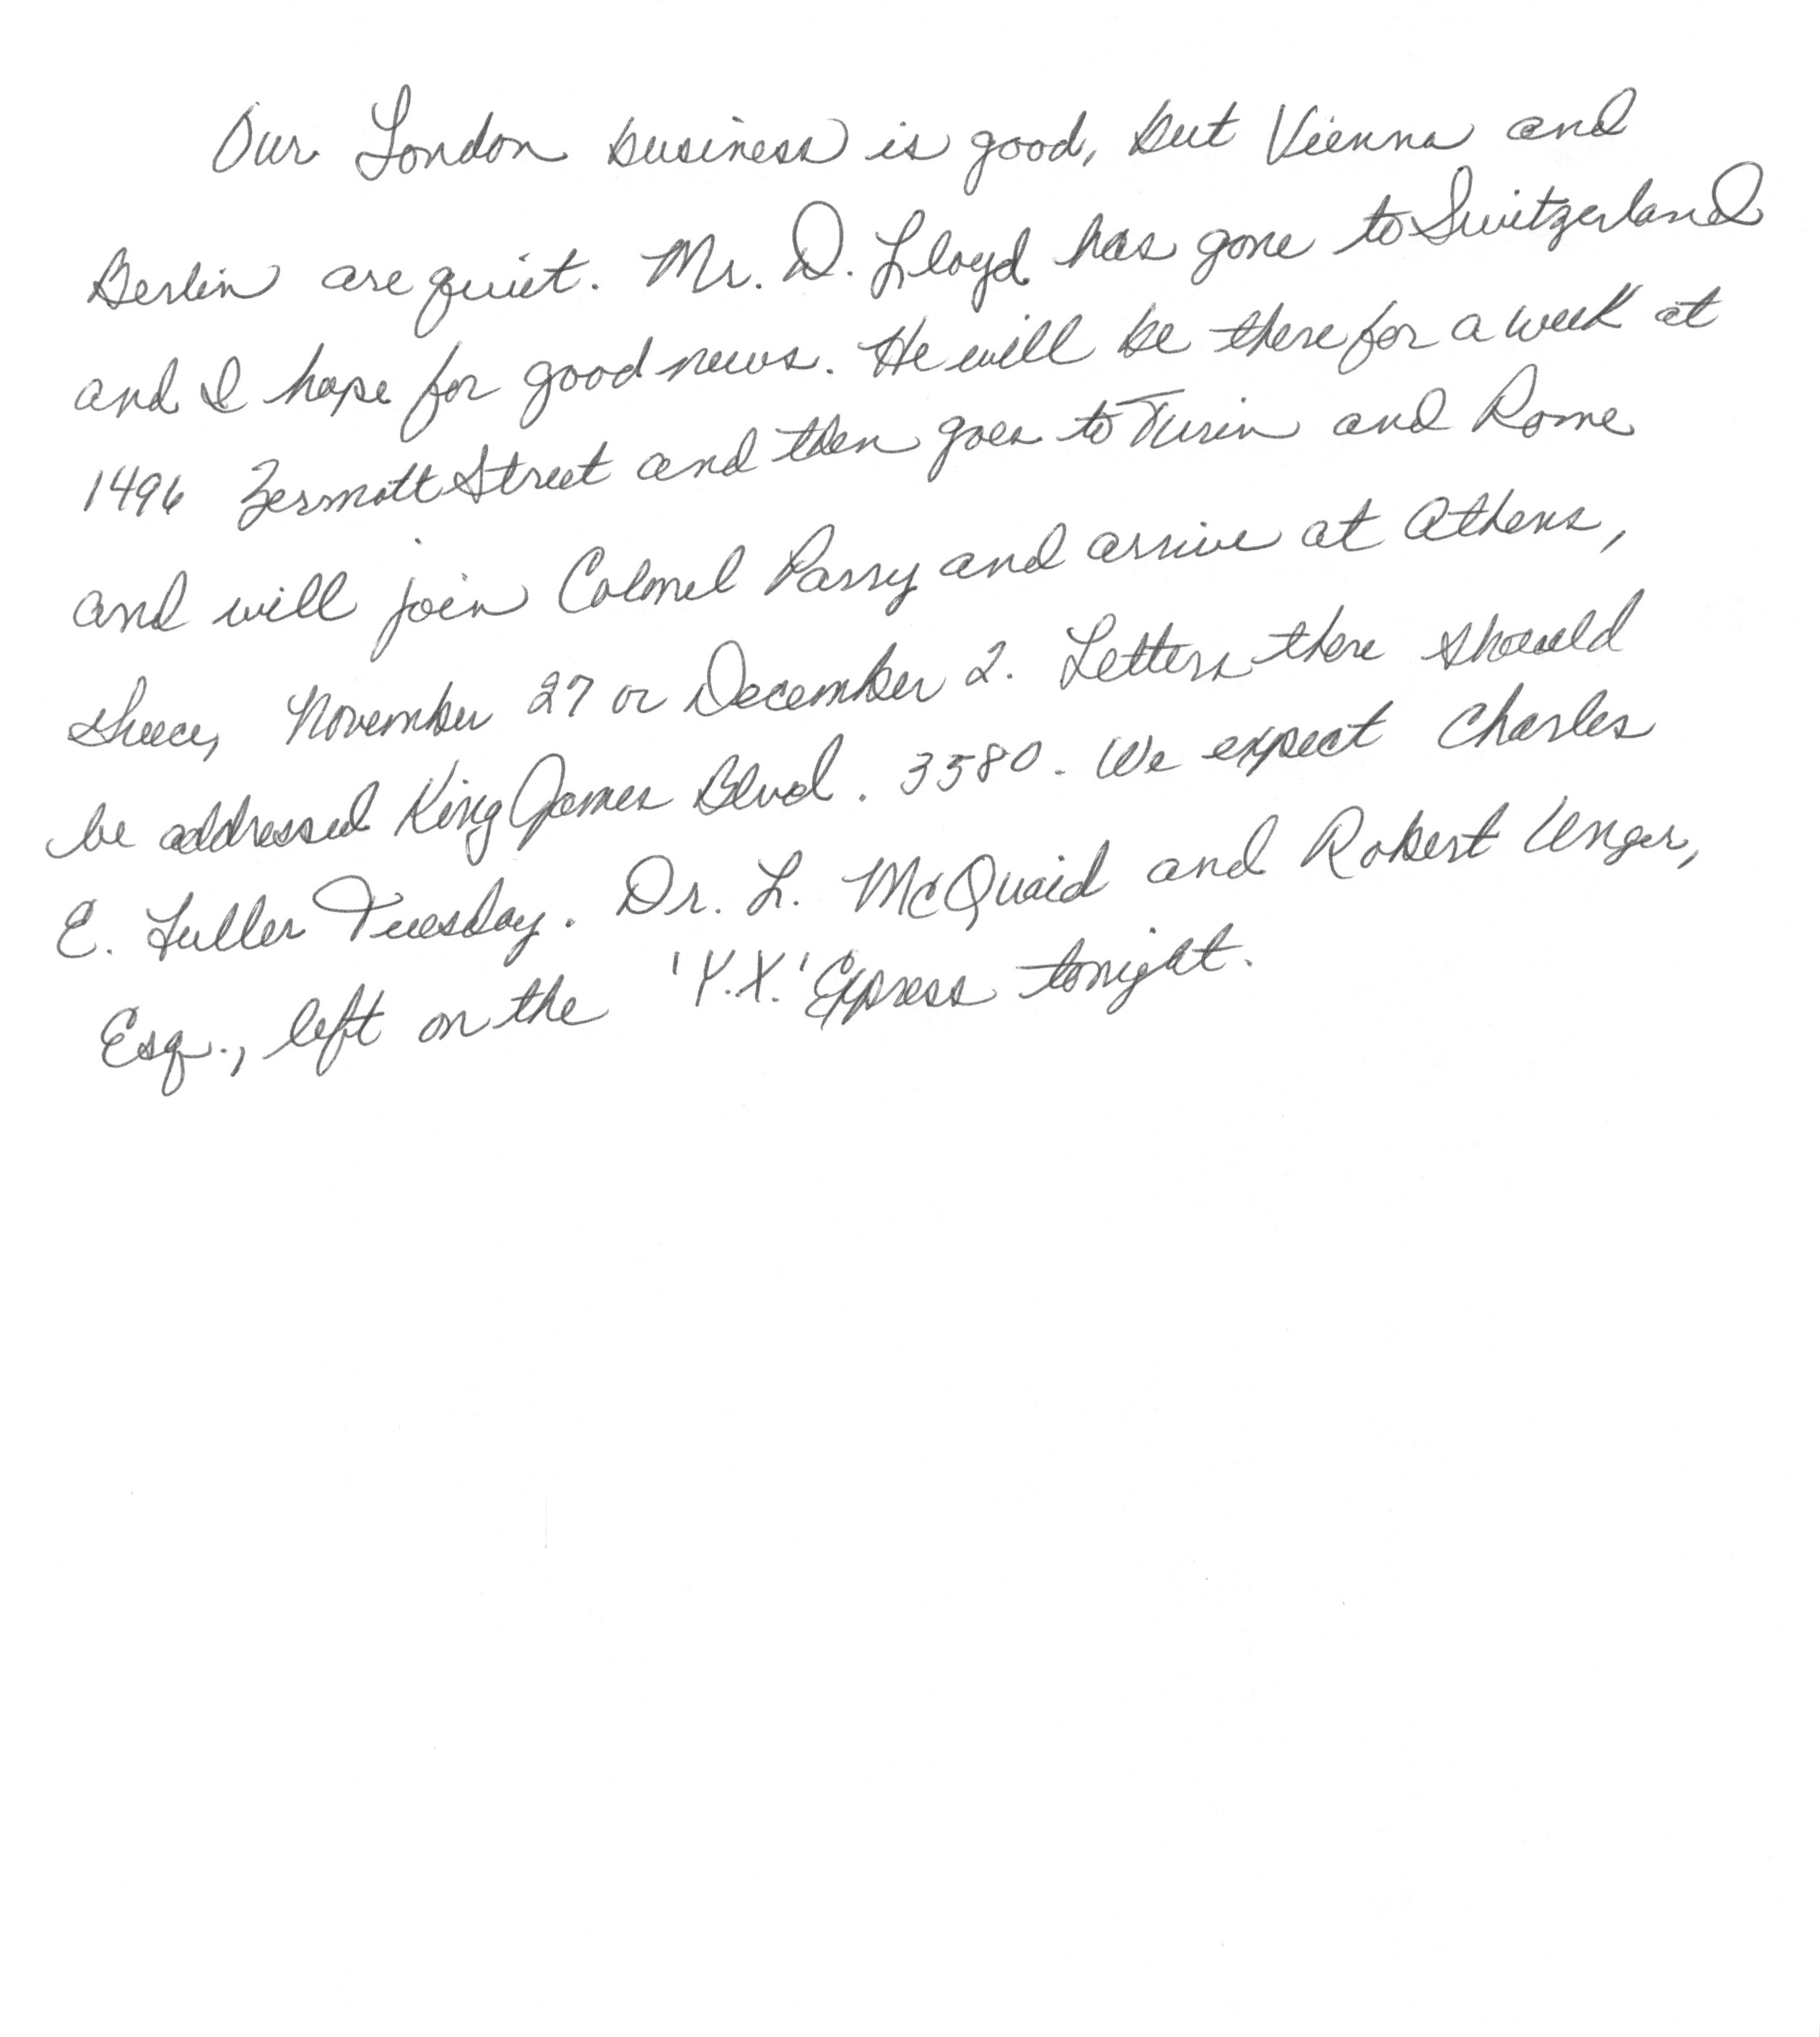 Our London business is good, but Vienna and
Berlin are quiet. Mr. D. Lloyd has gone to Switzerland
and I hope for good news. He will be there for a week at
1496 Zermott Street and then goes to Turin and Rome
and will join Colonel Parry and arrive at Athens,
Greece, November 27 or December 2. Letters there should
be addressed King James Blvd. 3580. We expect Charles
E. Fuller Tuesday. Dr. L. McQuaid and Robert Unger,
Esq., left on the 'Y.X.' Express tonight.